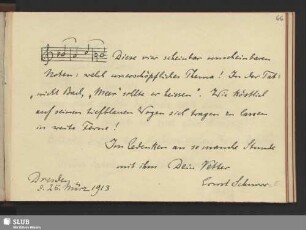 66
Diese vier scheinbar unscheinbaren
Noten: welch unerschöpfliches Thema! In der Tat:
"nicht Bach, "Meer" sollte er heissen". Wie köstlich
auf seinen tiefblauen Wogen sich tragen zu lassen
in weite Ferne!
Im Gedenken an so manche Stunde
mit ihm Dein Vetter
Dresden
d. 26. März 1913
Ernst
SLUB